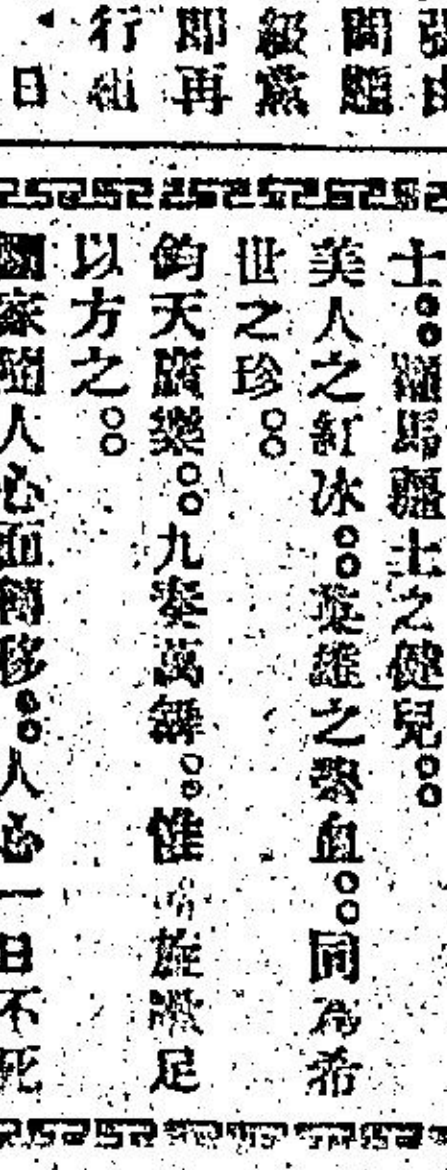 問題
級黨
即再
行組
日
士。。羅馬疆士之健兒。。
美人之紅冰。。英雄之熱血。。同為希
世之珍。。
鈞天廣樂。。九奏萬舞。。惟 旋 足
以方之。。
國家隨人心而轉移。。人心一日不死